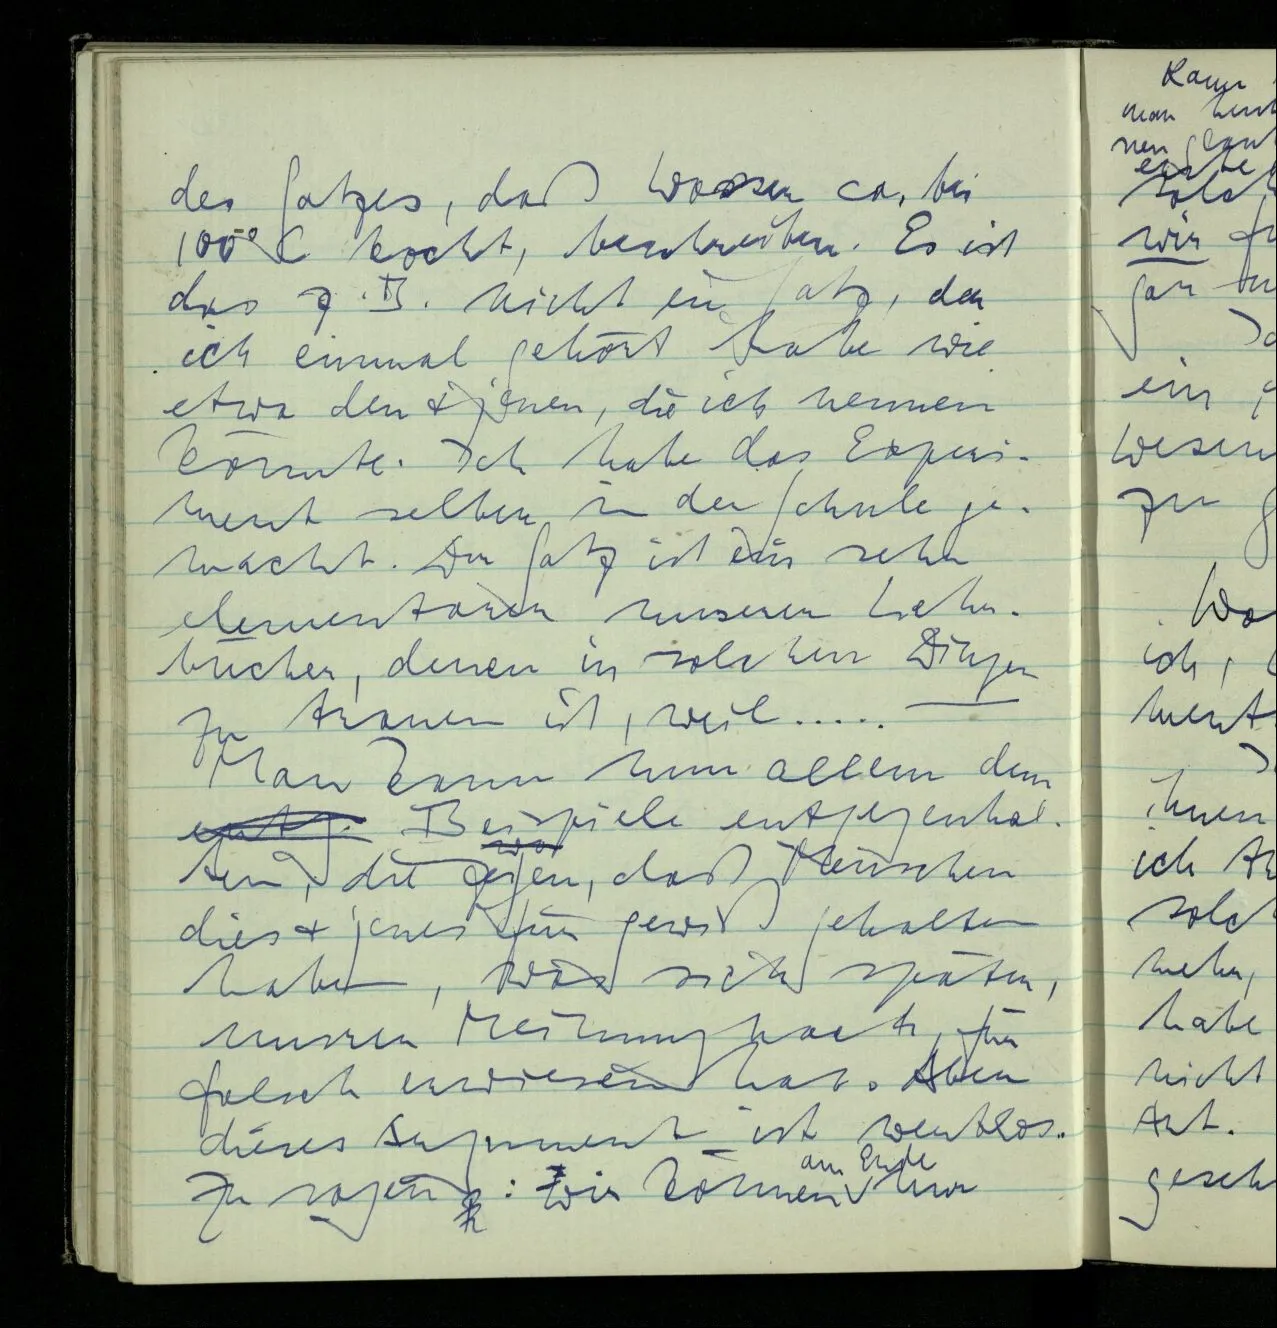 des Satzes, daß Wasser ca. bei
100° C kocht, beschreiben. Es ist
das z.B. nicht ein Satz, den
ich einmal gehört habe wie
etwa den & jenen, die ich nennen
könnte. Ich habe das Experi-
ment selber in der Schule ge-
macht. Der Satz ist ein sehr
elementarer unserer Lehr-
bücher, denen in solchen Dingen
zu trauen ist, weil.....
Man kann nun allem dem
Beispiele entgegenhal-
ten, die zeigen, daß Menschen
dies & jenes für gewiß gehalten
haben, was sich später,
unserer Meinung nach, für
falsch erwiesen hat. Aber
dieses Argument ist wertlos.
am Ende
Zu sagen: wir können nur
Kann
man
nen
wir
gar
ein
Wesen
zu
ich,
ment
ihnen
ich
solch
mehr,
habe
nicht
Art.
gesch